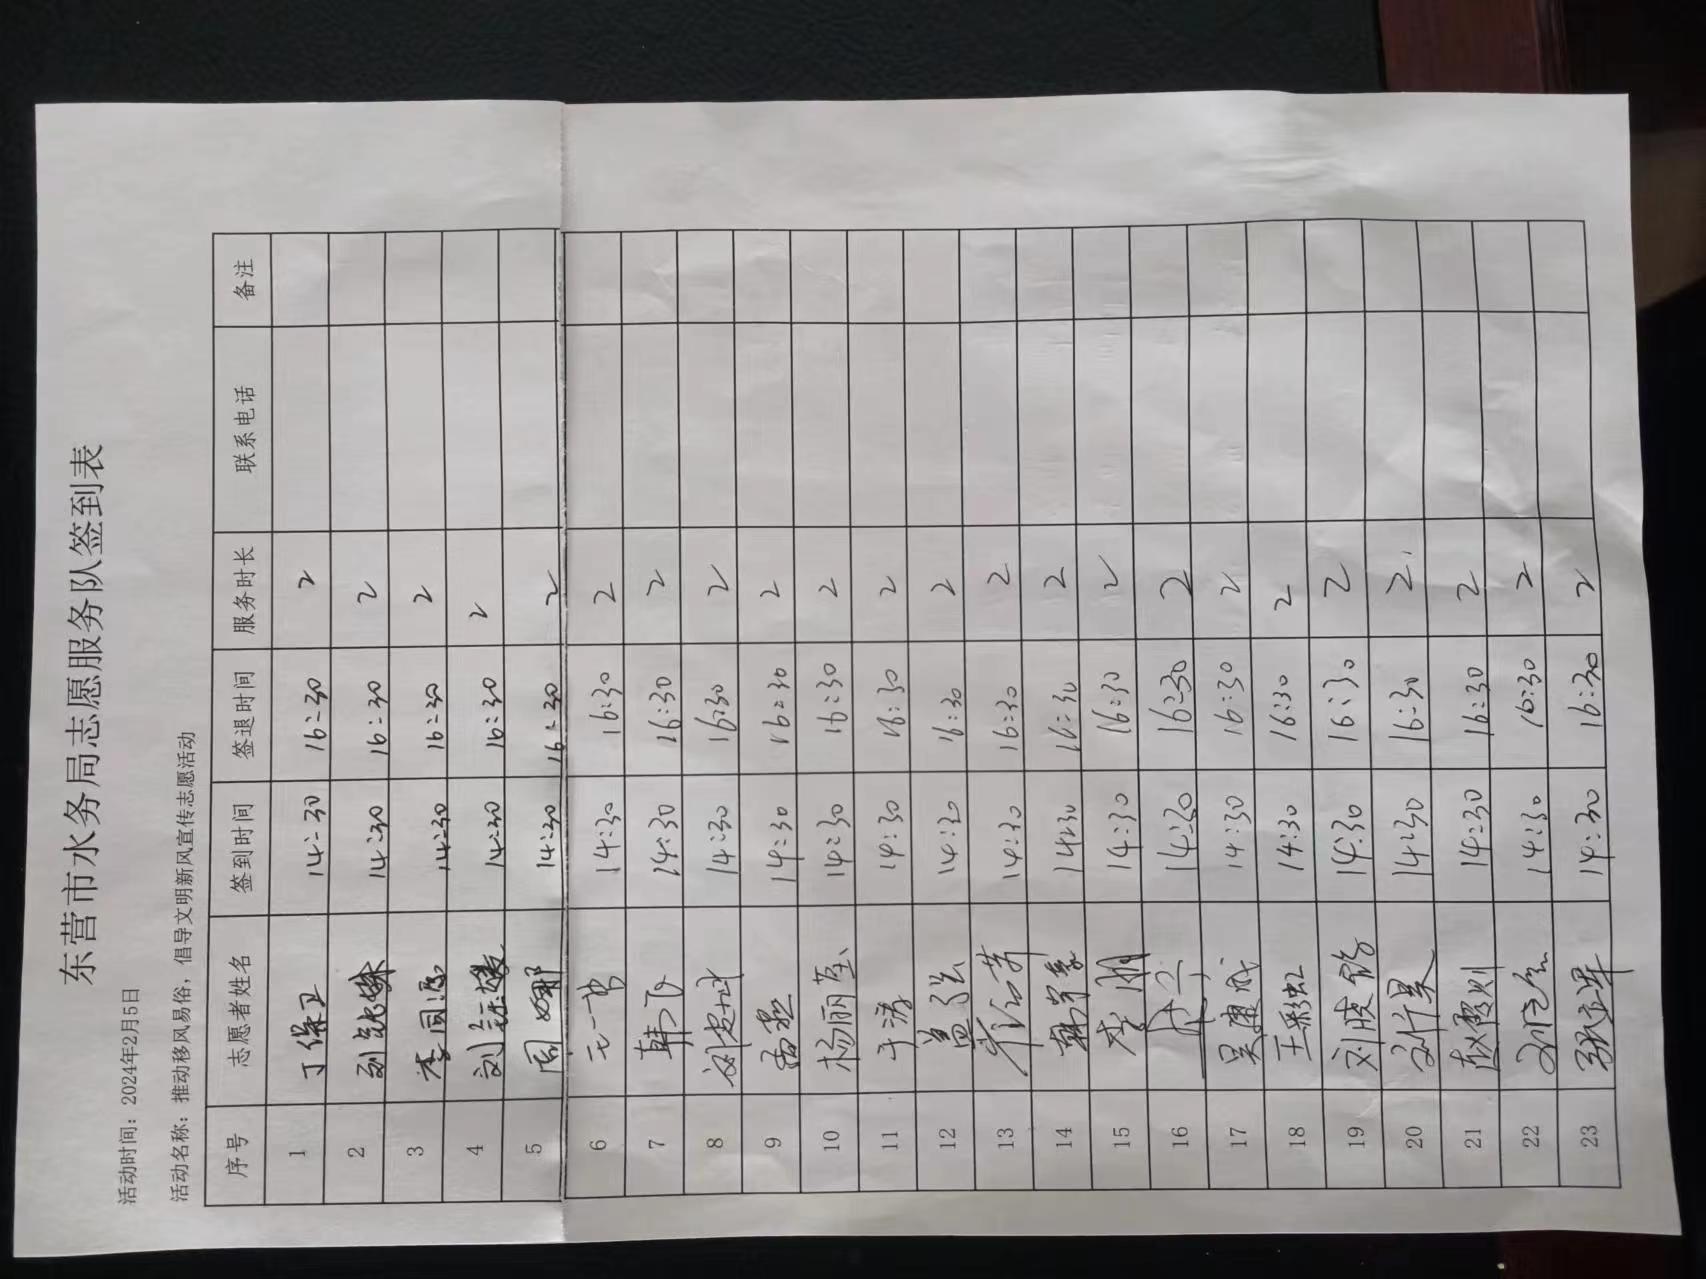 东营市水务局志愿服务队签到表
活动时间：2024年2月5日
活动名称：推动移风易俗，倡导文明新风宣传志愿活动
序号 志愿者姓名 签到时间 签退时间 服务时长 联系电话 备注
1 丁保卫 14:30 16:30 2
2 刘 14:30 16:30 2
3 李 14:30 16:30 2
4 刘 14:30 16:30 2
5 周娜 14:30 16:30 2
6 14:30 16:30 2
7 韩飞 14:30 16:30 2
8 刘 14:30 16:30 2
9 14:30 16:30 2
10 杨丽 14:30 16:30 2
11 于涛 14:30 16:30 2
12 14:30 16:30 2
13 14:30 16:30 2
14 韩 14:30 16:30 2
15 李朋 14:30 16:30 2
16 14:30 16:30 2
17 吴康成 14:30 16:30 2
18 王彩虹 14:30 16:30 2
19 刘 14:30 16:30 2
20 刘昊 14:30 16:30 2
21 赵 14:30 16:30 2
22 14:30 16:30 2
23 张 14:30 16:30 2